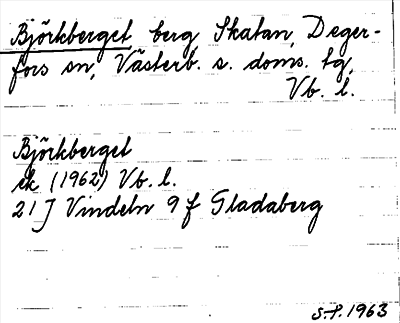 Björkberget berg, Skatan, Deger-
fors sn, Västerb. s. doms. tg,
Vb. l.
Björkberget
ek (1962) Vb. l.
21 J Vindeln 9 f Gladaberg
S.F. 1963